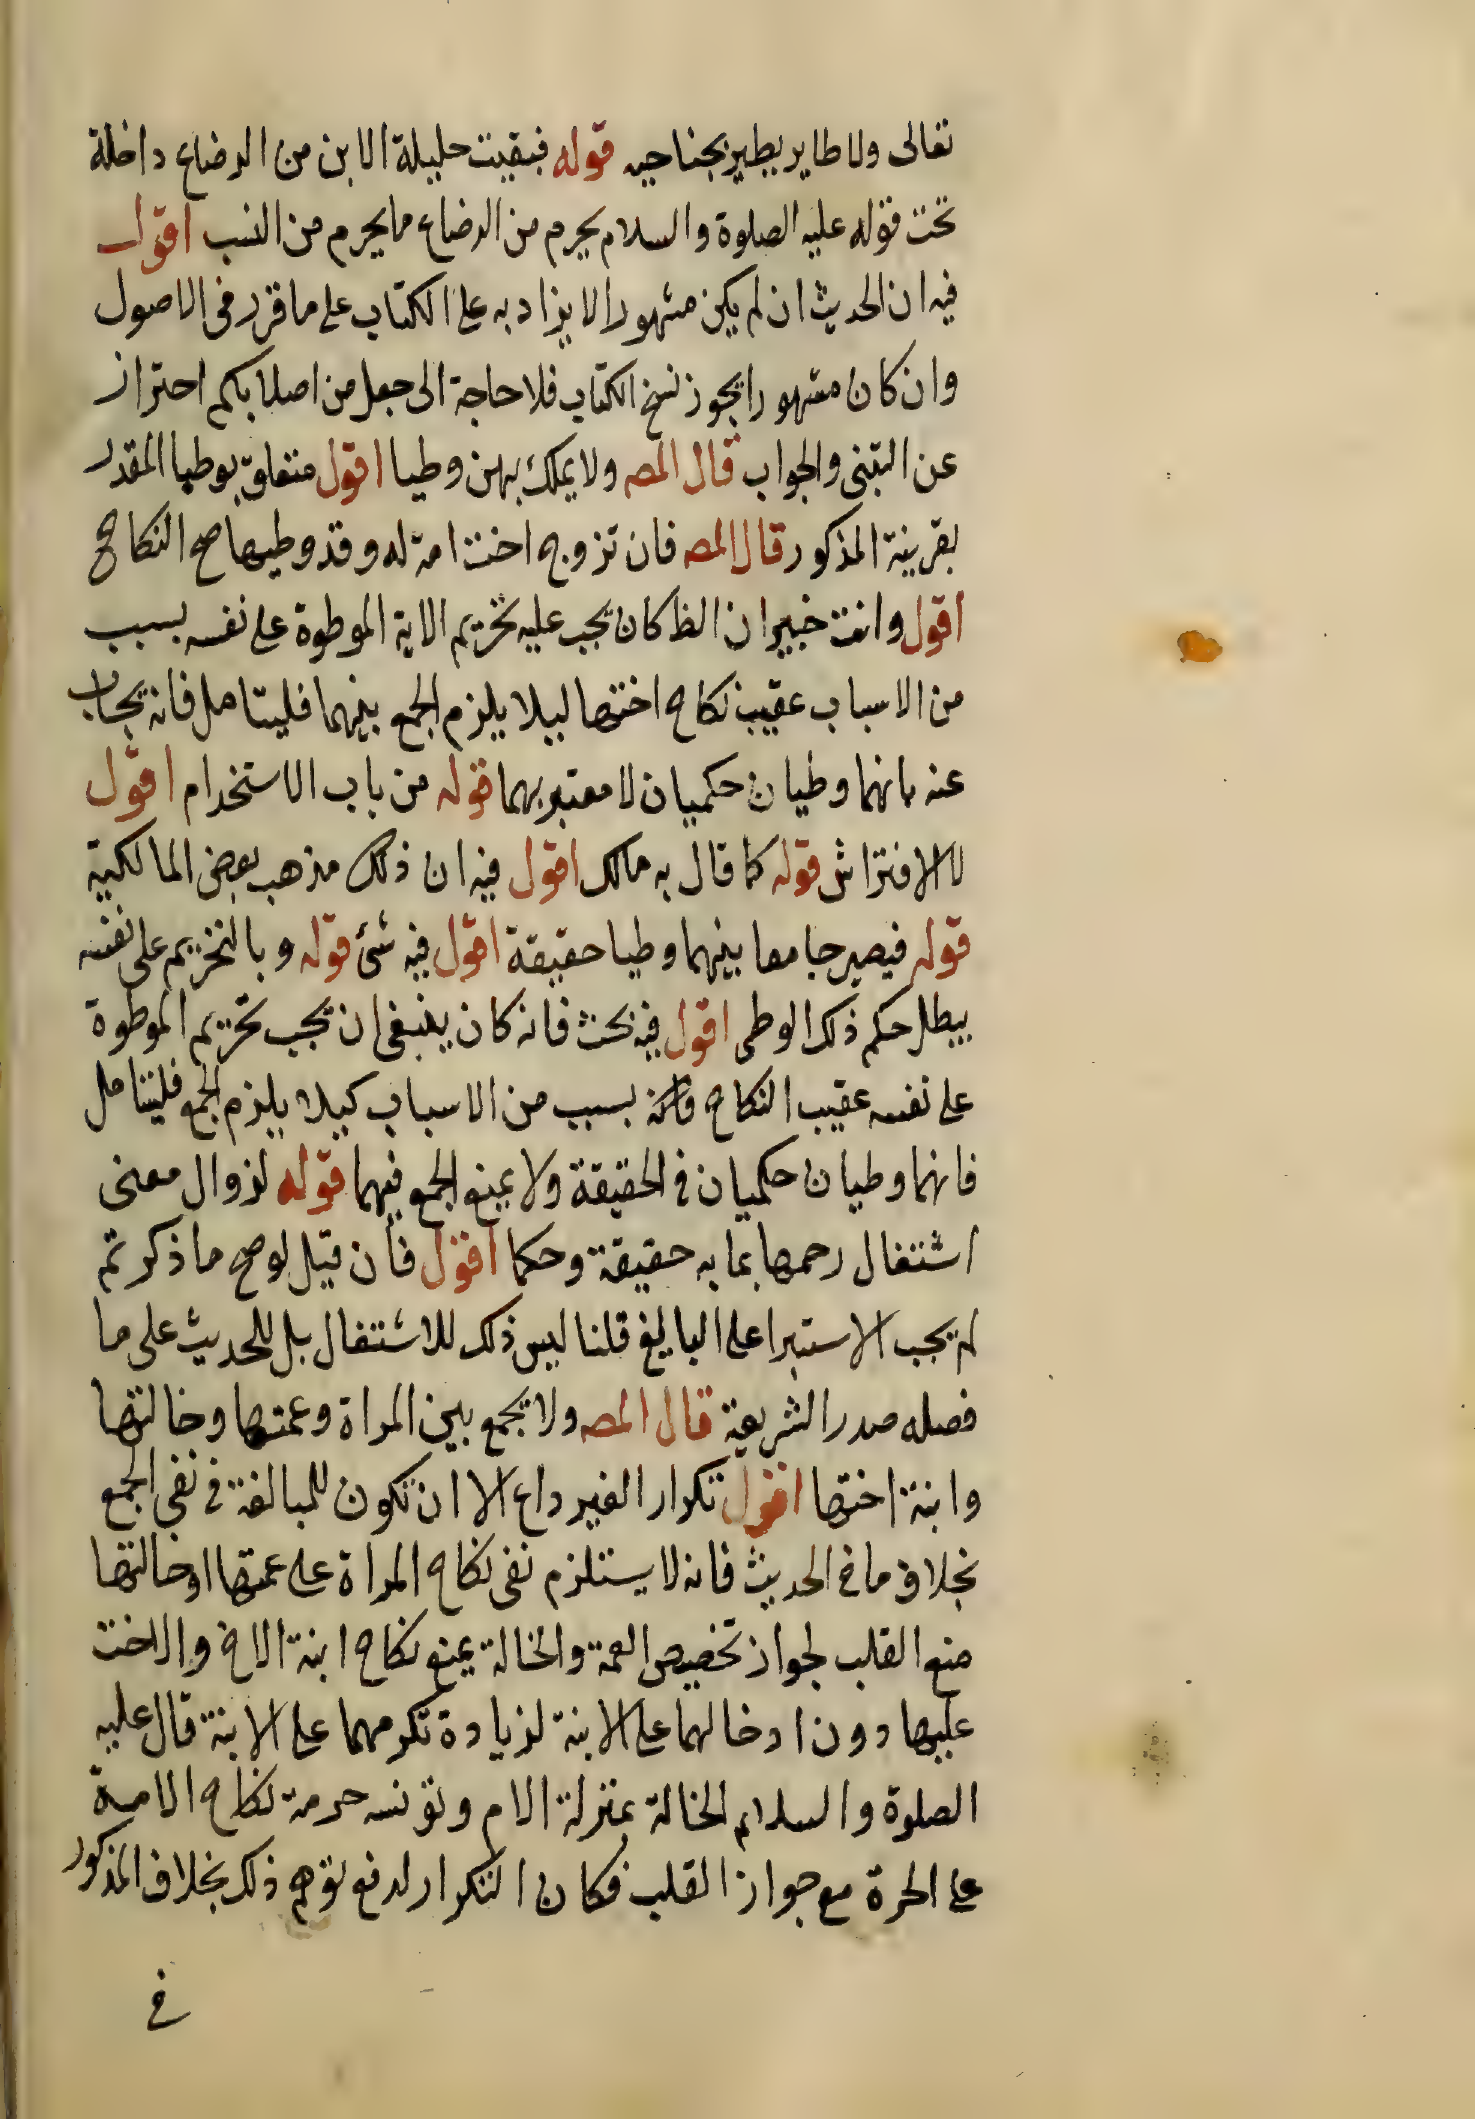 تعالى ولا طاير يطير بجناحيه قوله فبقيت حليلة الابن من الرضاع داخلة
تحت قوله عليه الصلوة والسلام يحرم من الرضاع ما يحرم من النسب اقول
فيه ان الحديث ان لم يكن مشهورا لا يزاد به على الكتاب على ما قرر في الاصول
وان كان مشهورا يجوز نسخ الكتاب فلا حاجة الى جعل من اصلابكم احتراز
عن التبني والجواب قال المصـ ولا يملك بهن وطيا اقول متعلق بوطيا المقدر
بقرينة المذكور قال المصـ فان تزوج اخت امة له وقد وطيها صح النكاح
اقول وانت خبير ان الظ كان يجب عليه تحريم الامة الموطوة على نفسه بسبب
من الاسباب عقيب نكاح اختها ليلا يلزم الجمع بينهما فليتامل فانه يجاب
عنه بانهما وطيان حكميان لا معتبر بهما قوله من باب الاستخدام اقول
لا الافتراش قوله كما قال به مالك اقول فيه ان ذلك مذهب بعض المالكية
قوله فيصير جامعا بينهما وطيا حقيقة اقول فيه شئ قوله وبالتحريم على نفسه
يبطل حكم ذلك الوطى اقول فيه بحث فانه كان ينبغي ان يجب تحريم الموطوة
على نفسه عقيب النكاح بسبب من الاسباب كيلا يلزم الجمع فليتامل
فانهما وطيان حكميان في الحقيقة ولا يمنع الجمع فيهما قوله لزوال معنى
اشتغال رحمها بمايه حقيقة وحكما اقول فان قيل لو صح ما ذكر تم
لم يجب الاستبرا على البايع قلنا ليس ذلك للاشتغال بل للحديث على ما
فصله صدر الشريعة قال المصـ ولا يجمع بين المراة وعمتها وخالتها
وابنة اختها اقول تكرار لغير داع الا ان تكون للمبالغة في نفى الجمع
بخلاف ما في الحديث فانه لا يستلزم نفى نكاح المراة على عمتها او خالتها
منع القلب لجواز تخصيص العمة والخالة يمنع نكاح ابنة الاخ والاخت
عليها دون ادخالهما على الابنة لزيادة تكرمهما على الابنة قال عليه
الصلوة والسلام الخالة بمنزلة الام وتونسه حرمة نكاح الامة
على الحرة مع جواز القلب فكان التكرار لدفع توهم ذلك بخلاف المذكور
في